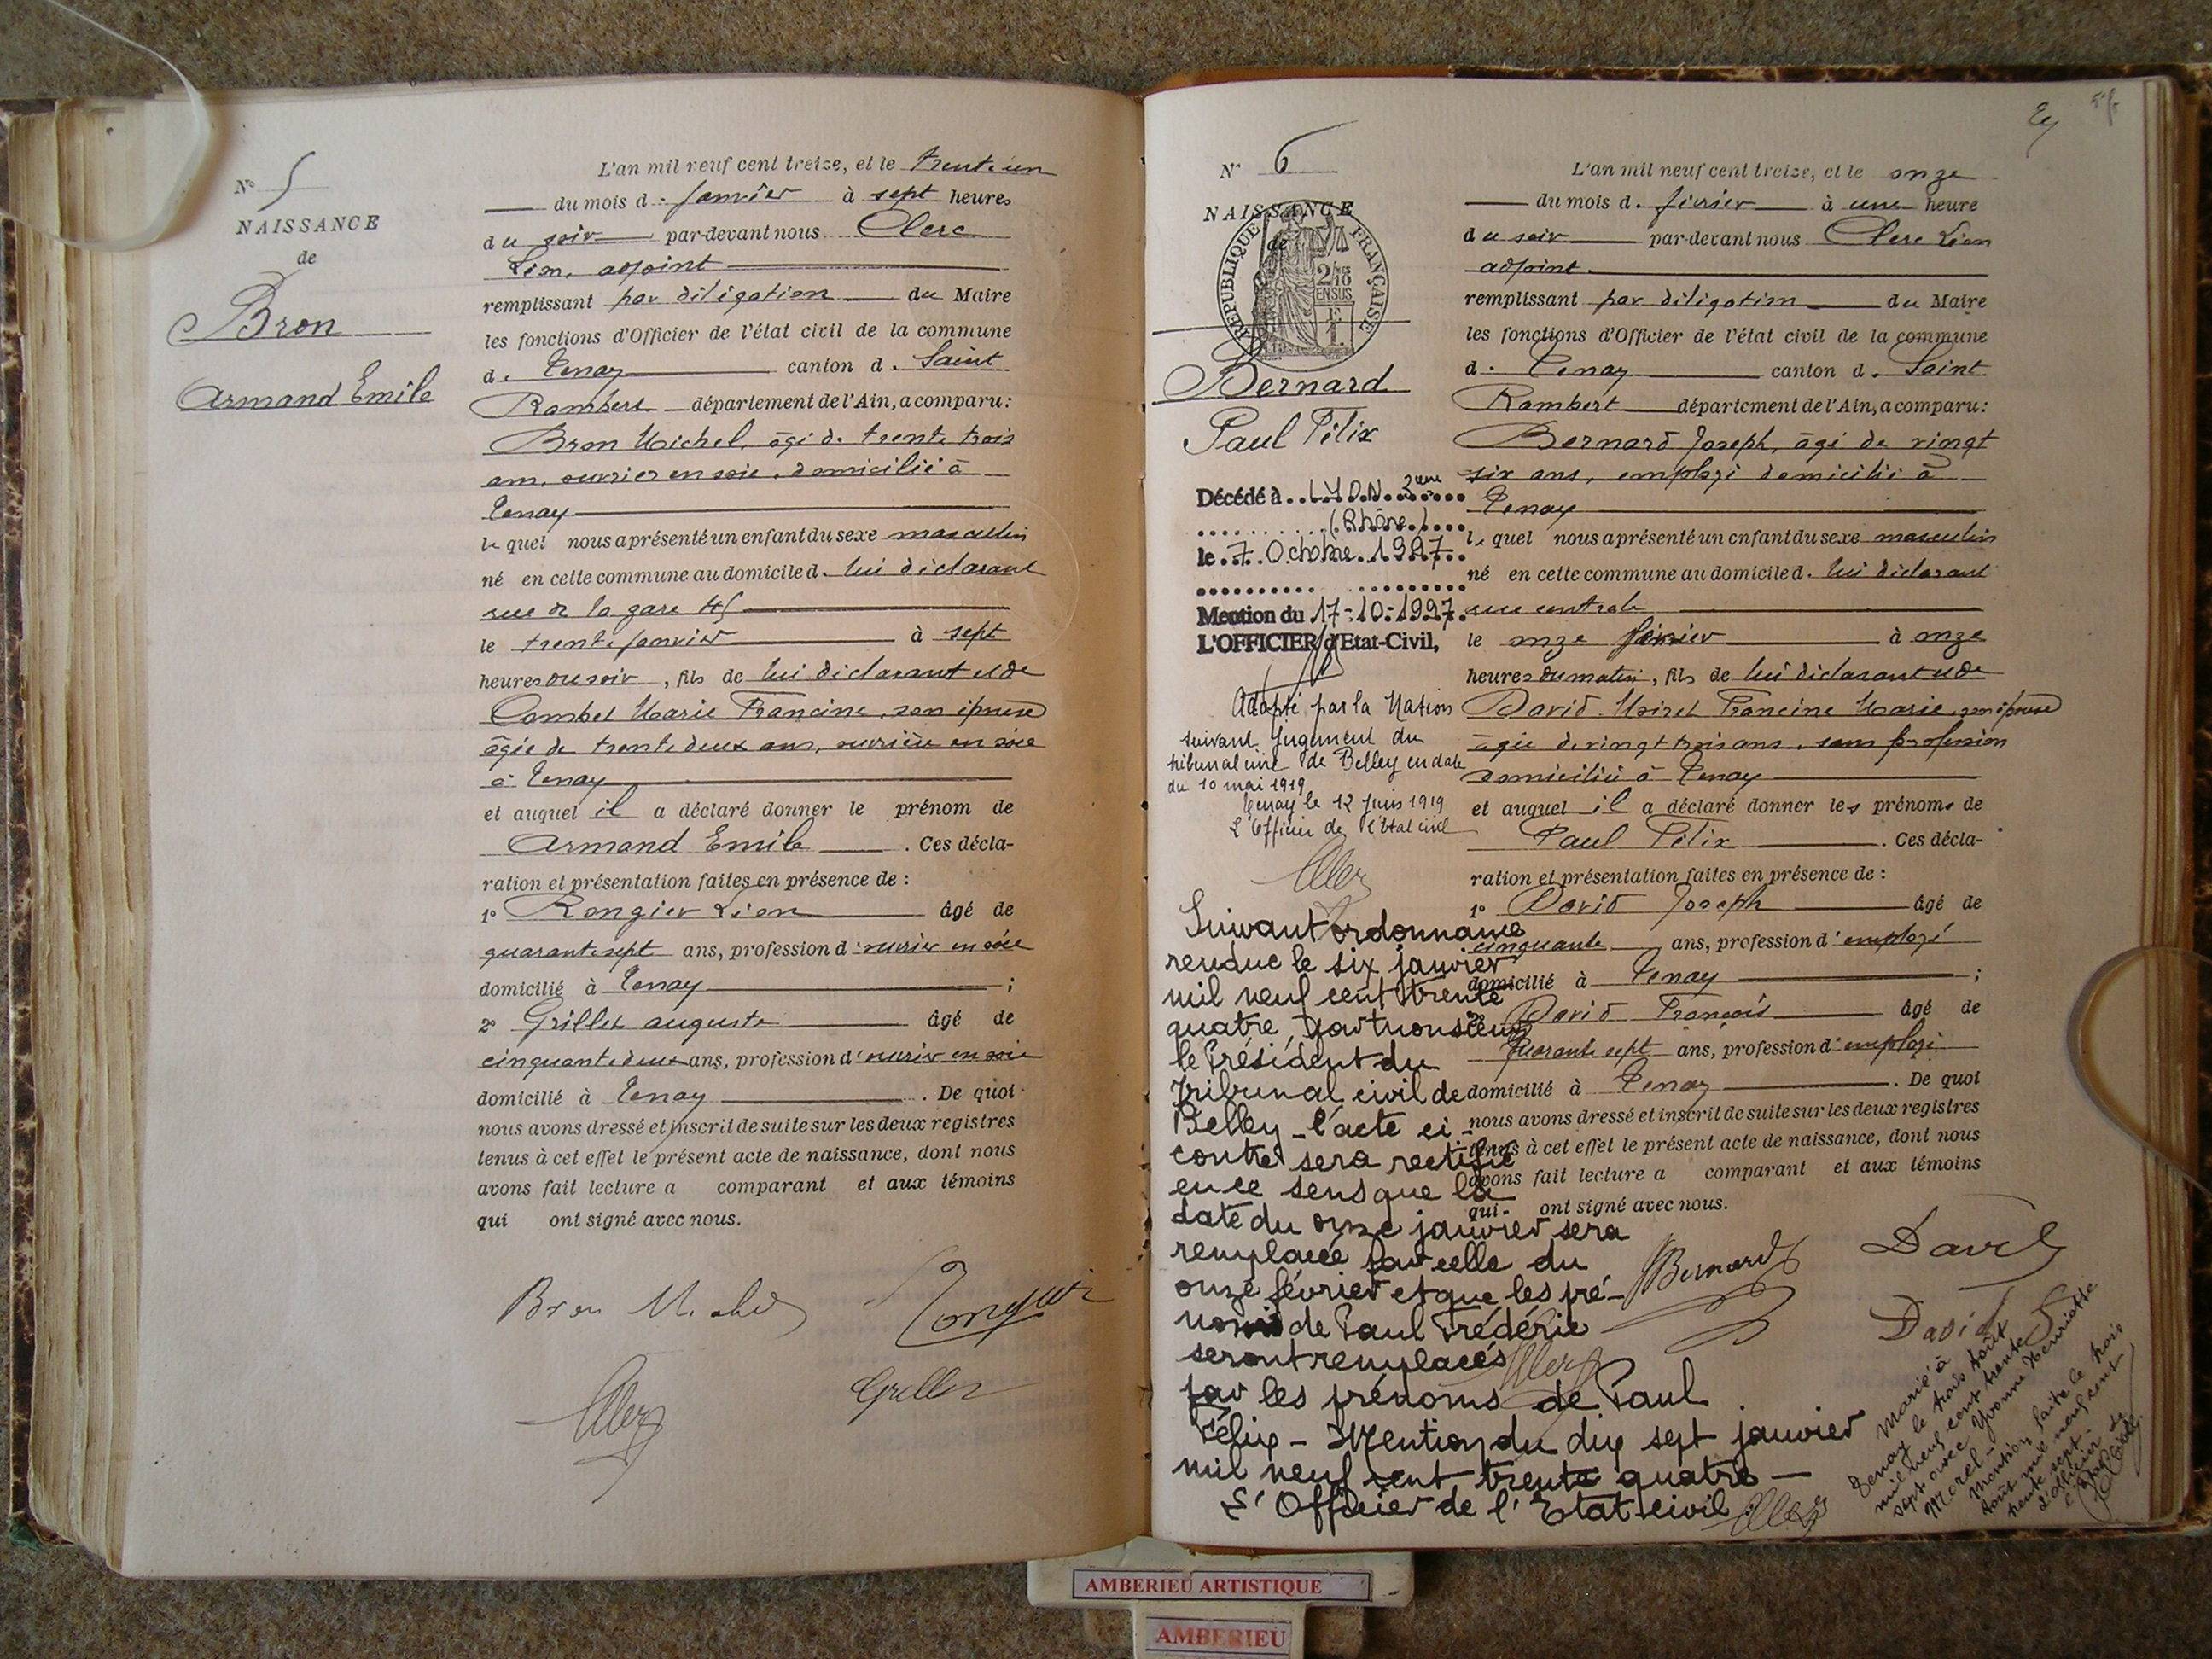 N° 5
NAISSANCE
de
Bron
Armand Emile
L'an mil neuf cent treize, et le trente un
du mois d. janvier à sept heures
du soir par-devant nous Clerc
Léon, adjoint
remplissant par délégation du Maire
les fonctions d'Officier de l'état civil de la commune
d. Tenay canton d. Saint
Rambert département de l'Ain, a comparu:
Bron Michel, âgé de trente trois
ans, ouvrier en soie, domicilié à
Tenay
lequel nous a présenté un enfant du sexe masculin
né en cette commune au domicile d. lui déclarant
rue de la gare 45
le trente janvier à sept
heures du soir, fils de lui déclarant et de
Combet Marie Francine, son épouse
âgée de trente deux ans, ouvrière en soie
à Tenay
et auquel il a déclaré donner le prénom de
Armand Emile. Ces décla-
ration et présentation faites en présence de :
1° Rongier Léon âgé de
quarante sept ans, profession d'ouvrier en soie
domicilié à Tenay ;
2° Grillet auguste âgé de
cinquante deux ans, profession d'ouvrier en soie
domicilié à Tenay. De quoi
nous avons dressé et inscrit de suite sur les deux registres
tenus à cet effet le présent acte de naissance, dont nous
avons fait lecture a comparant et aux témoins
qui ont signé avec nous.
Bron
N° 6
NAISSANCE
de
REPUBLIQUE FRANÇAISE
2/10
EN SUS
Bernard
Paul Félix
Décédé à LYON 3ème
(Rhône)
le 7 Octobre 1997
Mention du 17-10-1997
L'OFFICIER d'Etat-Civil,
Adopté par la Nation
suivant Jugement du
tribunal civil de Belley en date
du 10 mai 1919
Tenay le 12 Juin 1919
L'Officier de l'Etat civil
Suivant ordonnance
rendue le six janvier
mil neuf cent trente
quatre, par monsieur
le Président du
Tribunal civil de
Belley - l'acte ci-
contre sera rectifié
en ce sens que la
date du onze janvier sera
remplacée par celle du
onze février et que les pré-
noms de Paul Frédéric
seront remplacés
par les prénoms de Paul
Félix - Mention du dix sept janvier
mil neuf cent trente quatre -
L'Officier de l'Etat civil
L'an mil neuf cent treize, et le onze
du mois d. février à une heure
du soir par-devant nous Clerc Léon
adjoint.
remplissant par délégation du Maire
les fonctions d'Officier de l'état civil de la commune
d. Tenay canton d. Saint
Rambert département de l'Ain, a comparu:
Bernard Joseph, âgé de vingt
six ans, employé domicilié à
Tenay
lequel nous a présenté un enfant du sexe masculin
né en cette commune au domicile d. lui déclarant
rue centrale
le onze février à onze
heures du matin, fils de lui déclarant et de
David Francine Marie, son épouse
âgée de vingt trois ans, sans profession
domiciliée à Tenay
et auquel il a déclaré donner les prénoms de
Paul Félix. Ces décla-
ration et présentation faites en présence de :
1° David Joseph âgé de
cinquante ans, profession d'employé
domicilié à Tenay ;
2° David François âgé de
quarante sept ans, profession d'employé
domicilié à Tenay. De quoi
nous avons dressé et inscrit de suite sur les deux registres
tenus à cet effet le présent acte de naissance, dont nous
avons fait lecture a comparant et aux témoins
qui ont signé avec nous.
Bernard
David
David
Marié à
Tenay le trois Août
mil neuf cent trente
sept avec Yvonne Henriette
Morel -
Mention faite le trois
Août mil neuf cent
trente sept -
L'officier de
l'Etat Civil
AMBERIEU ARTISTIQUE
AMBERIEU